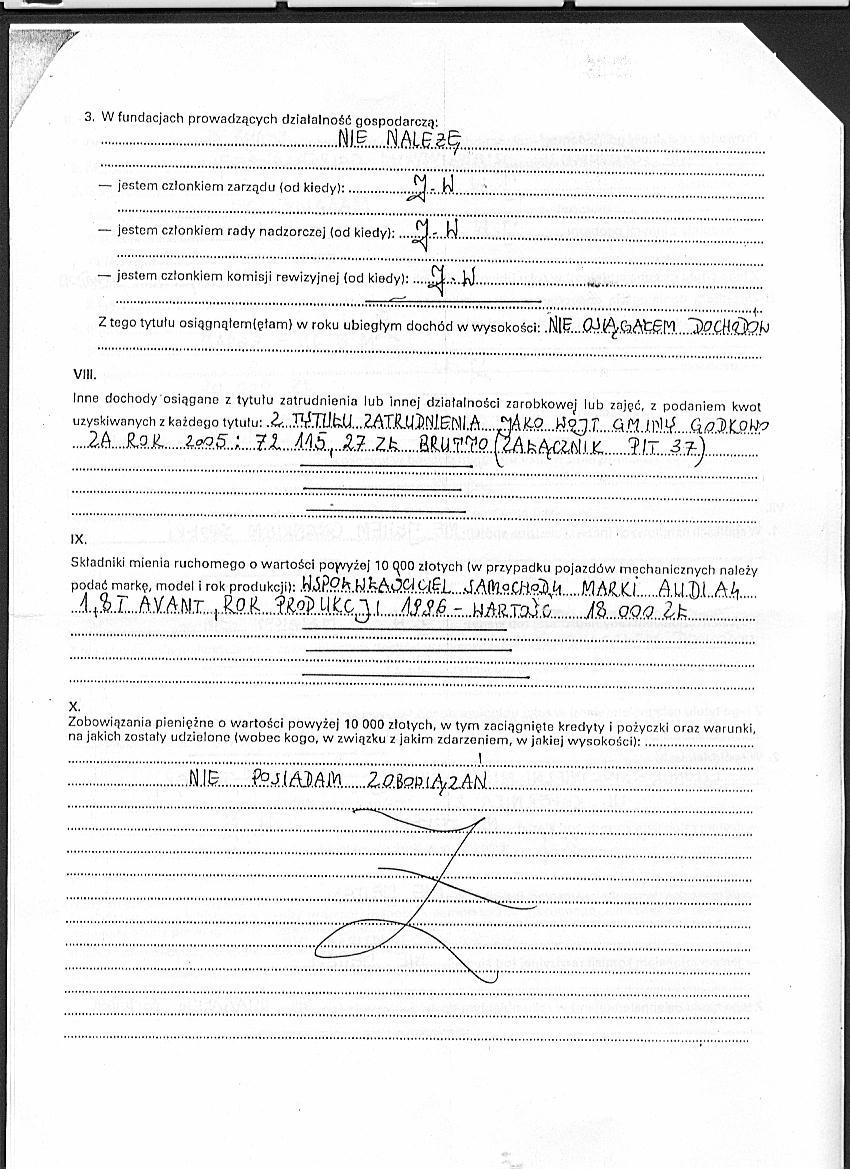 3. W fundacjach prowadzących działalność gospodarczą:
NIE NALEŻĘ
— jestem członkiem zarządu (od kiedy): J.W
— jestem członkiem rady nadzorczej (od kiedy): J.W
— jestem członkiem komisji rewizyjnej (od kiedy): J.W
Z tego tytułu osiągnąłem(ęłam) w roku ubiegłym dochód w wysokości: NIE OSIĄGAŁEM DOCHODÓW
VIII.
Inne dochody osiągane z tytułu zatrudnienia lub innej działalności zarobkowej lub zajęć, z podaniem kwot
uzyskiwanych z każdego tytułu: Z TYTUŁU ZATRUDNIENIA JAKO WÓJT GMINY GODKOWO
ZA ROK 2005: 72 115,27 ZŁ BRUTTO (ZAŁĄCZNIK PIT 37)
IX.
Składniki mienia ruchomego o wartości powyżej 10 000 złotych (w przypadku pojazdów mechanicznych należy
podać markę, model i rok produkcji): WSPÓŁWŁAŚCICIEL SAMOCHODU MARKI AUDI A4
1,8T AVANT, ROK PRODUKCJI 1996 - WARTOŚĆ 18 000 ZŁ
X.
Zobowiązania pieniężne o wartości powyżej 10 000 złotych, w tym zaciągnięte kredyty i pożyczki oraz warunki,
na jakich zostały udzielone (wobec kogo, w związku z jakim zdarzeniem, w jakiej wysokości):
NIE POSIADAM ZOBOWIĄZAŃ